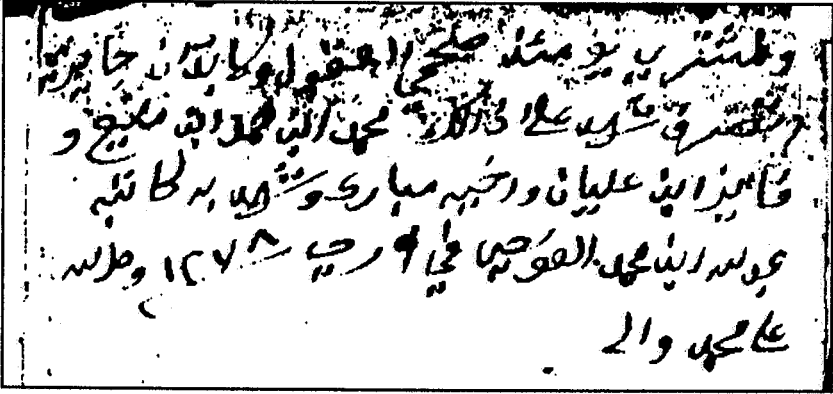 ومشتري يومئذ صحيحي العقول وكاملان جايزين
التصرف شهد على ذلك محمد ابن حمد ابن مفيز و
فايز ابن عليان واخيه مبارك وشهد به كاتبه
عبدالله ابن محمد العوجي في ٩ رجب سنة ١٢٧٨ وصلى الله
على محمد واله